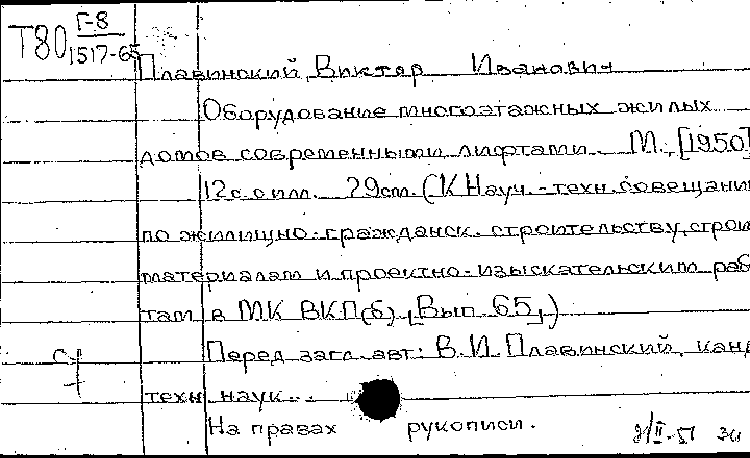 Г-8
Т80 1517-65
Плавинский, Виктор Иванович
Оборудование многоэтажных жилых
домов современными лифтами. М., [1950]
12 с. с илл. 29 см. (К Науч.-техн. совещани
по жилищно-гражданск. строительству, строи
материалам и проектно-изыскательским раб
там в МК ВКП(б). [Вып. 65].)
Перед загл. авт: В. И. Плавинский, канд
техн. наук..
На правах рукописи.